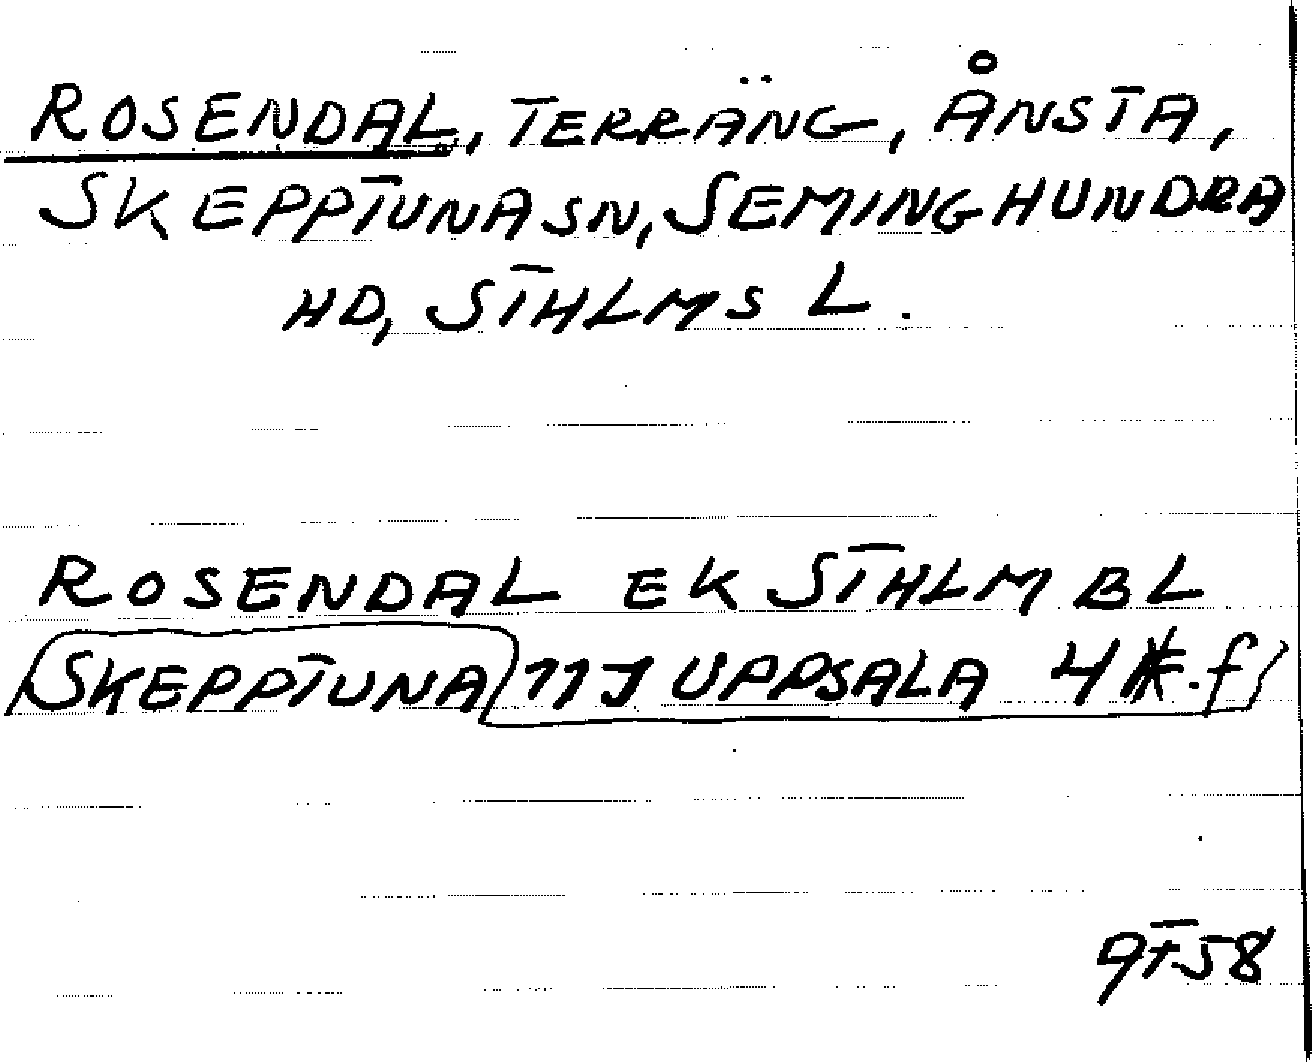 ROSENDAL, TERRÄNG, ÅNSTA,
SKEPPTUNA SN, SEMINGHUNDRA
HD, STHLMS L.
ROSENDAL EK STHLM BL
SKEPPTUNA 11J UPPSALA 4
9758